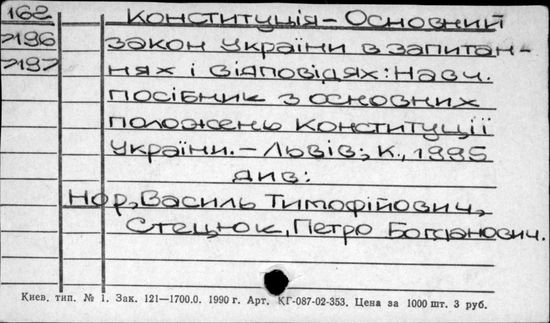 162 Конституція – Основний
7196 закон України в запитан-
7197 нях і відповідях: Навч.
посібник з основних
положень Конституції
України. – Львів; К., 1995
див:
Нор, Василь Тимофійович,
Стецюк, Петро Богданович.
Киев. тип. № 1. Зак. 121—1700.0. 1990 г. Арт. КГ-087-02-353. Цена за 1000 шт. 3 руб.